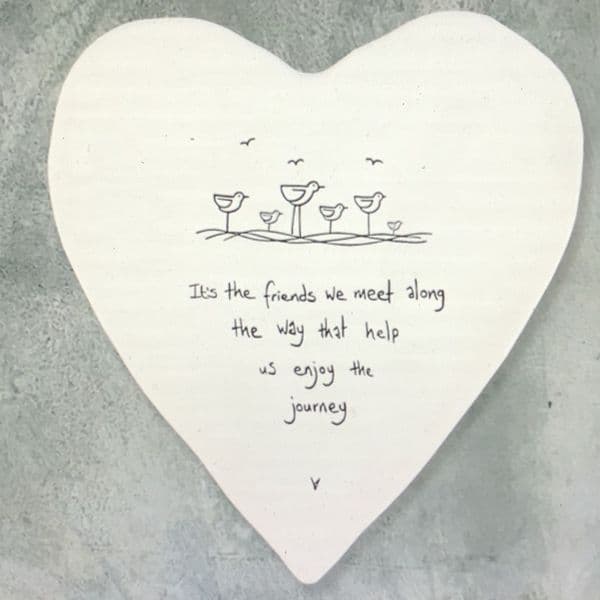 It's the friends we meet along
the way that help
us enjoy the
journey